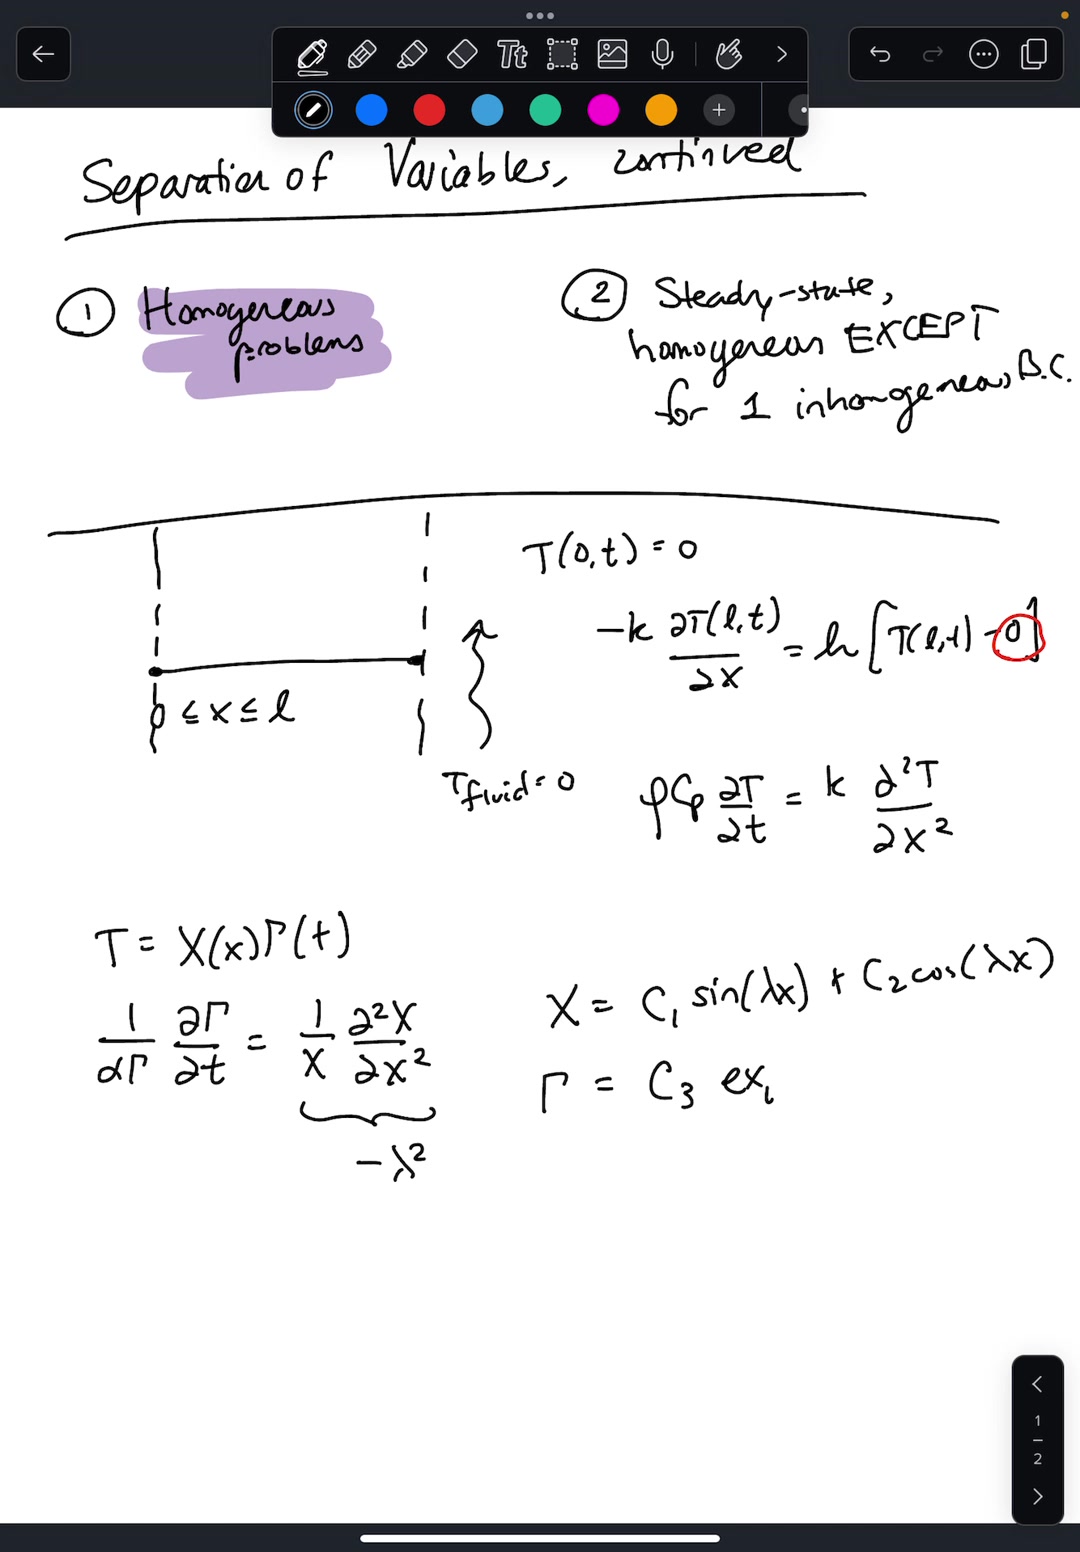 Tt
Separation of Variables, continued
① Homogeneous
problems
② Steady-state,
homogeneous EXCEPT
for 1 inhomogeneous B.C.
T(0,t) = 0
-k ∂T(l,t)/∂x = h[T(l,t) - 0]
0 ≤ x ≤ l
Tfluid = 0
ρCp ∂T/∂t = k ∂²T/∂x²
T = X(x)Γ(t)
1/αΓ ∂Γ/∂t = 1/X ∂²X/∂x²
-λ²
X = C₁ sin(λx) + C₂ cos(λx)
Γ = C₃ ex
1
2